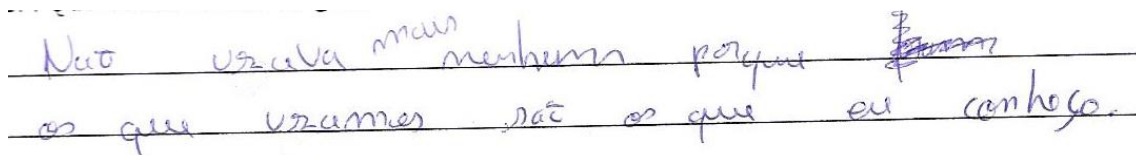 Não uzava mais nenhum porque
os que uzamos são os que eu conheço.